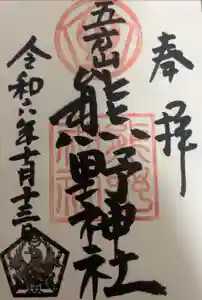 奉拝
五方山
熊野神社
令和六年十月十三日